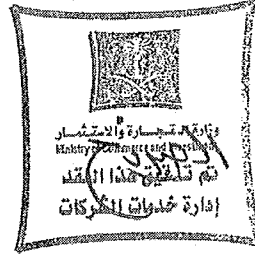 وزارة التجارة والاستثمار
Ministry of Commerce and Investment
تم تدقيق هذا العقد
إدارة خدمات الشركات